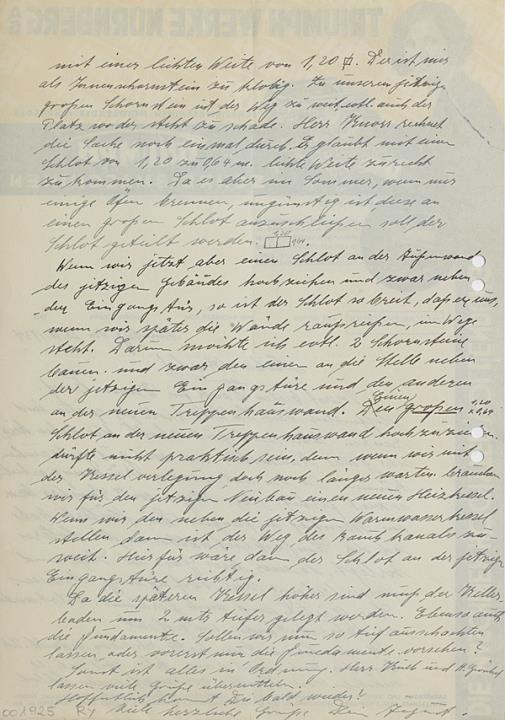 mit einer lichten Weite von 1,20 ⌀. Der ist mir
als Innenschornstein zu klobig. Zu unserem jetzigen
großen Schornstein ist der Weg zu weit evtl. auch der
Platz vor der zu schade. Herr Knorr rechnet
die Sache noch einmal durch. Er glaubt mit einem
Schlot von 1,20 zu 0,64 m. lichte Weite zurecht
zu kommen. Da es aber im Sommer, wenn nur
einige Öfen brennen, ungünstig ist diese an
einen großen Schlot anzuschließen soll der
Schlot geteilt werden. 1,20 0,64.
Wenn wir jetzt aber einen Schlot an der Außenwand
des jetzigen Gebäudes hochziehen und zwar neben
der Eingangstür, so ist der Schlot so breit, daß er uns,
wenn wir später die Wände rausreißen, im Wege
steht. Darum möchte ich evtl. 2 Schornsteine
bauen. und zwar den einen an die Stelle neben
der jetzigen Eingangstüre und den anderen
an der neuen Treppenhauswand. Einen großen 1,20 x 0,64
Schlot an der neuen Treppenhauswand hochzuziehen
dürfte nicht praktisch sein, denn wenn wir mit
der Kesselverlegung doch noch länger warten brauchen
wir für den jetzigen Neubau einen neuen Heizkessel.
Wenn wir den neben die jetzigen Warmwasserkessel
stellen dann ist der Weg des Rauchkanales zu
weit. Hierfür wäre dann der Schlot an der jetzigen
Eingangstüre richtig.
Da die späteren Kessel höher sind muß der Keller-
boden um 2 mtr tiefer gelegt werden. Ebenso auch
die Fundamente. Sollen wir nun so tief ausschachten
lassen oder vorerst nur die Fundamente vorsehen?
Sonst ist alles in Ordnung. Herr und H.
lassen viele Grüße übermitteln.
Hoffentlich kommst Du bald wieder?
001925 RY Viele herzliche Grüße Dein August.
TRIUMPH WERKE NÜRNBERG A.G.